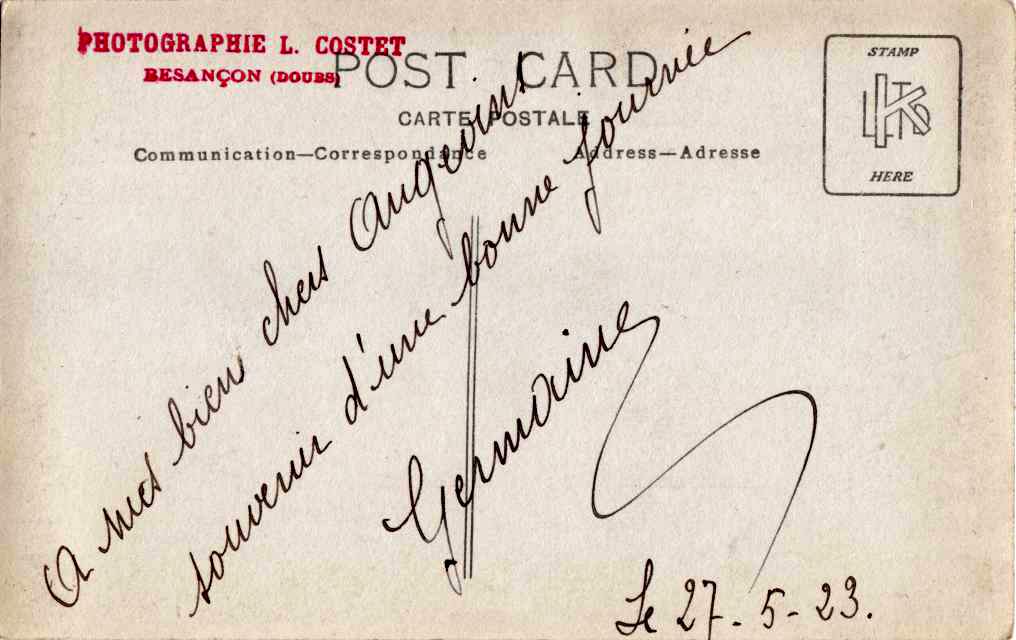 PHOTOGRAPHIE L. COSTET
BESANÇON (DOUBS)
POST CARD
CARTE POSTALE
Communication—Correspondance
Address—Adresse
STAMP
HERE
A mes biens chers
souvenir d'une bonne journée
Germaine
Le 27-5-23.